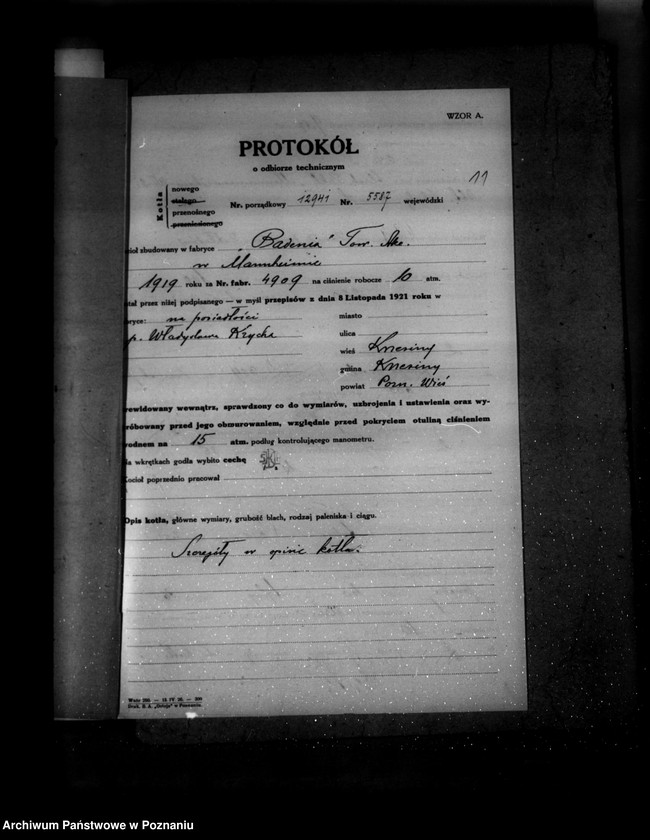 WZOR A.
PROTOKÓŁ
o odbiorze technicznym
11
Kotła
nowego
stałego
przenośnego
przeniesionego
Nr. porządkowy 12941 Nr. 5587 wejewódzki
cioł zbudowany w fabryce „Badenia" Tow. Akc.
w Mannheimie
1919 roku za Nr. fabr. 4909 na ciśnienie robocze 10 atm.
stał przez niżej podpisanego — w myśl przepisów z dnia 8 Listopada 1921 roku w
bryce: na posiadłości
miasto
p. Władysława Krycha
ulica
wieś Krzesiny
gmina Krzesiny
powiat Pozn. Wieś
rewidowany wewnątrz, sprawdzony co do wymiarów, uzbrojenia i ustawienia oraz wy-
róbowany przed jego obmurowaniem, względnie przed pokryciem otuliną ciśnieniem
rodnem na 15 atm. podług kontrolującego manometru.
a wkrętkach godła wybito cechę
Kocioł poprzednio pracował
Opis kotła, główne wymiary, grubość blach, rodzaj paleniska i ciągu.
Szczegóły w opisie kotła.
Druk. S. A. „Ostoja" w Poznaniu.
Archiwum Państwowe w Poznaniu